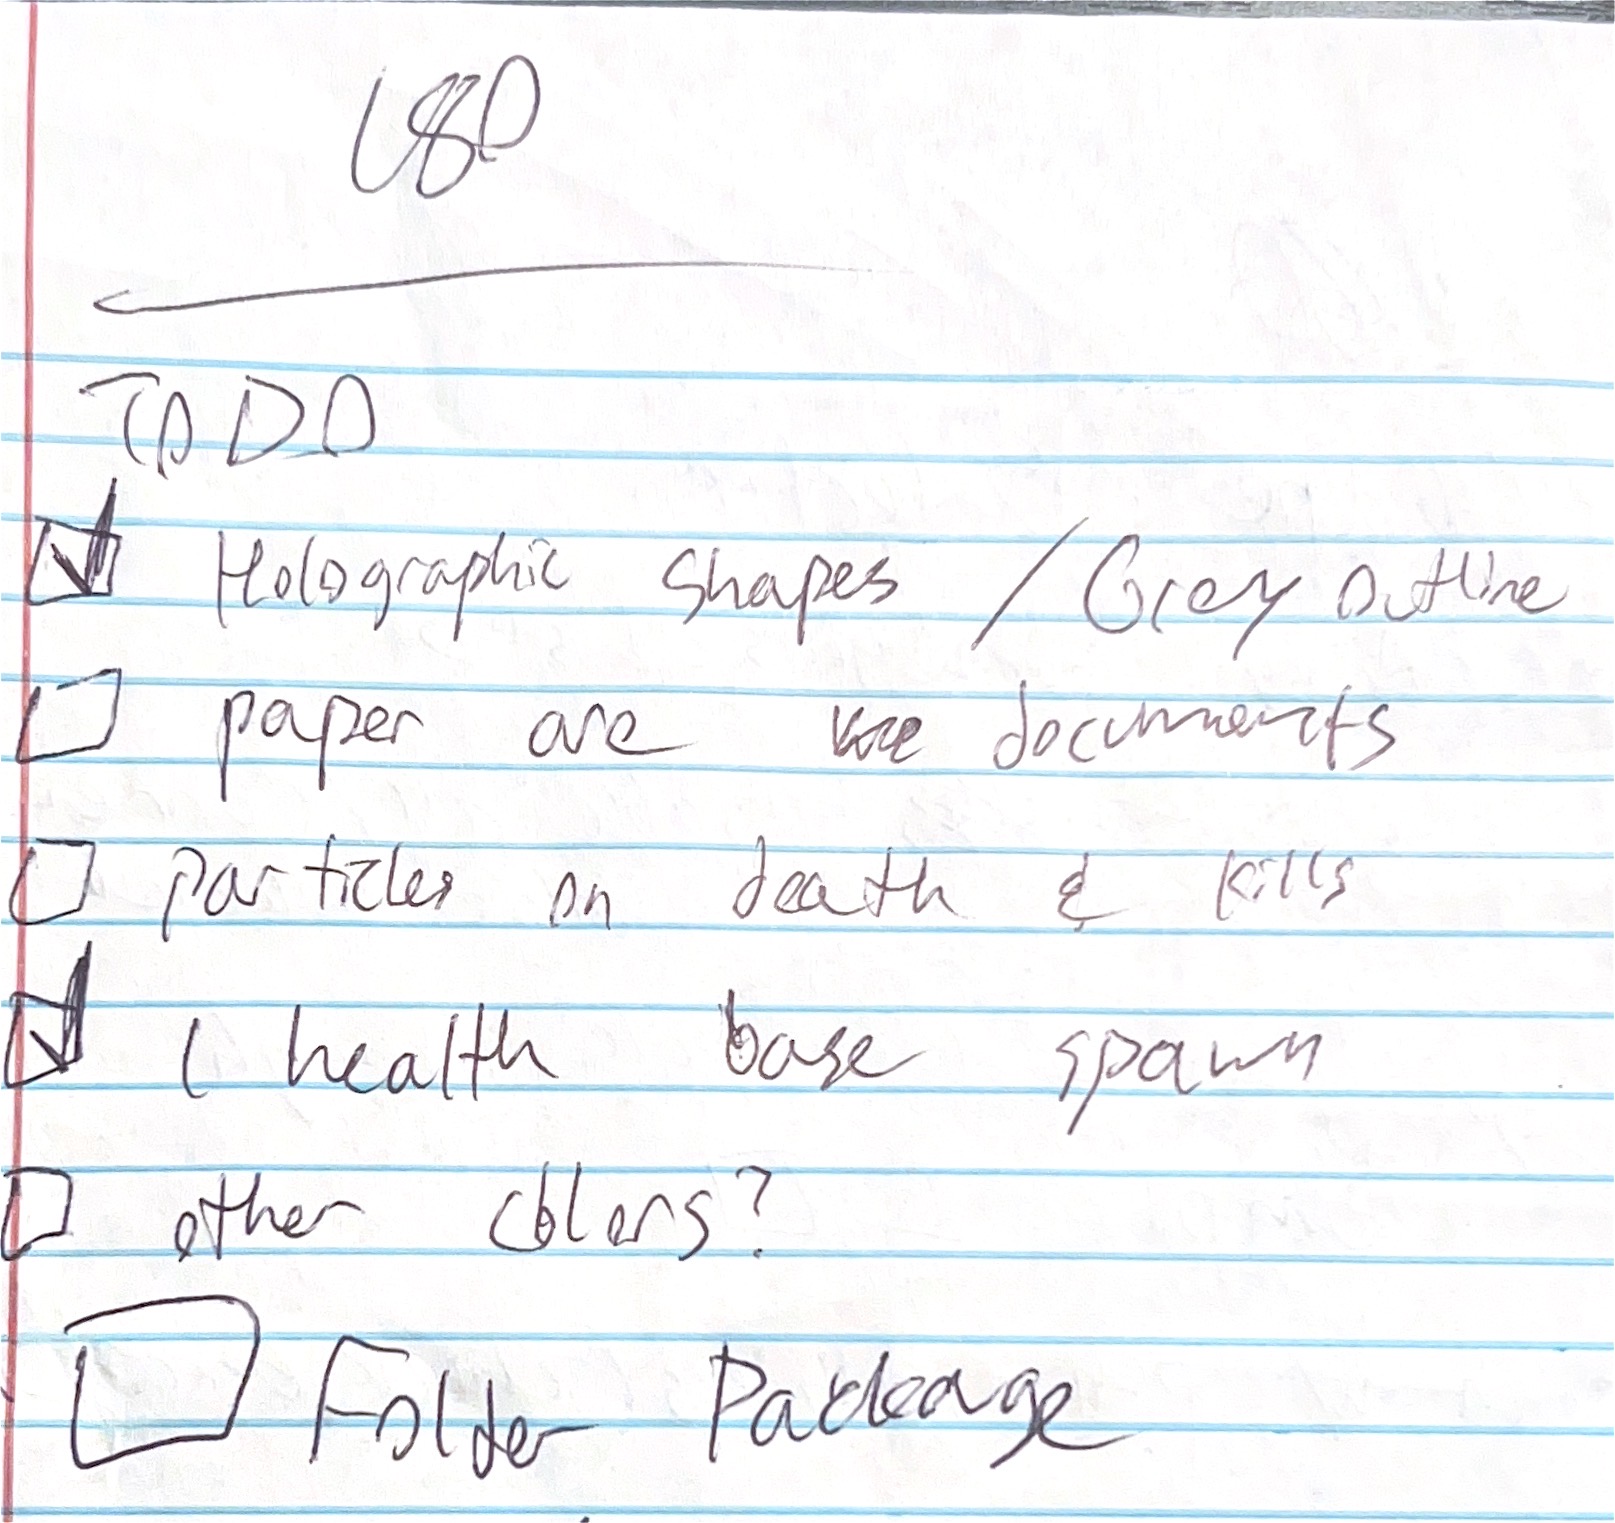 TODO
Holographic shapes / Grey outline
paper are documents
particles on death & kills
1 health base spawn
other colors?
Folder Package